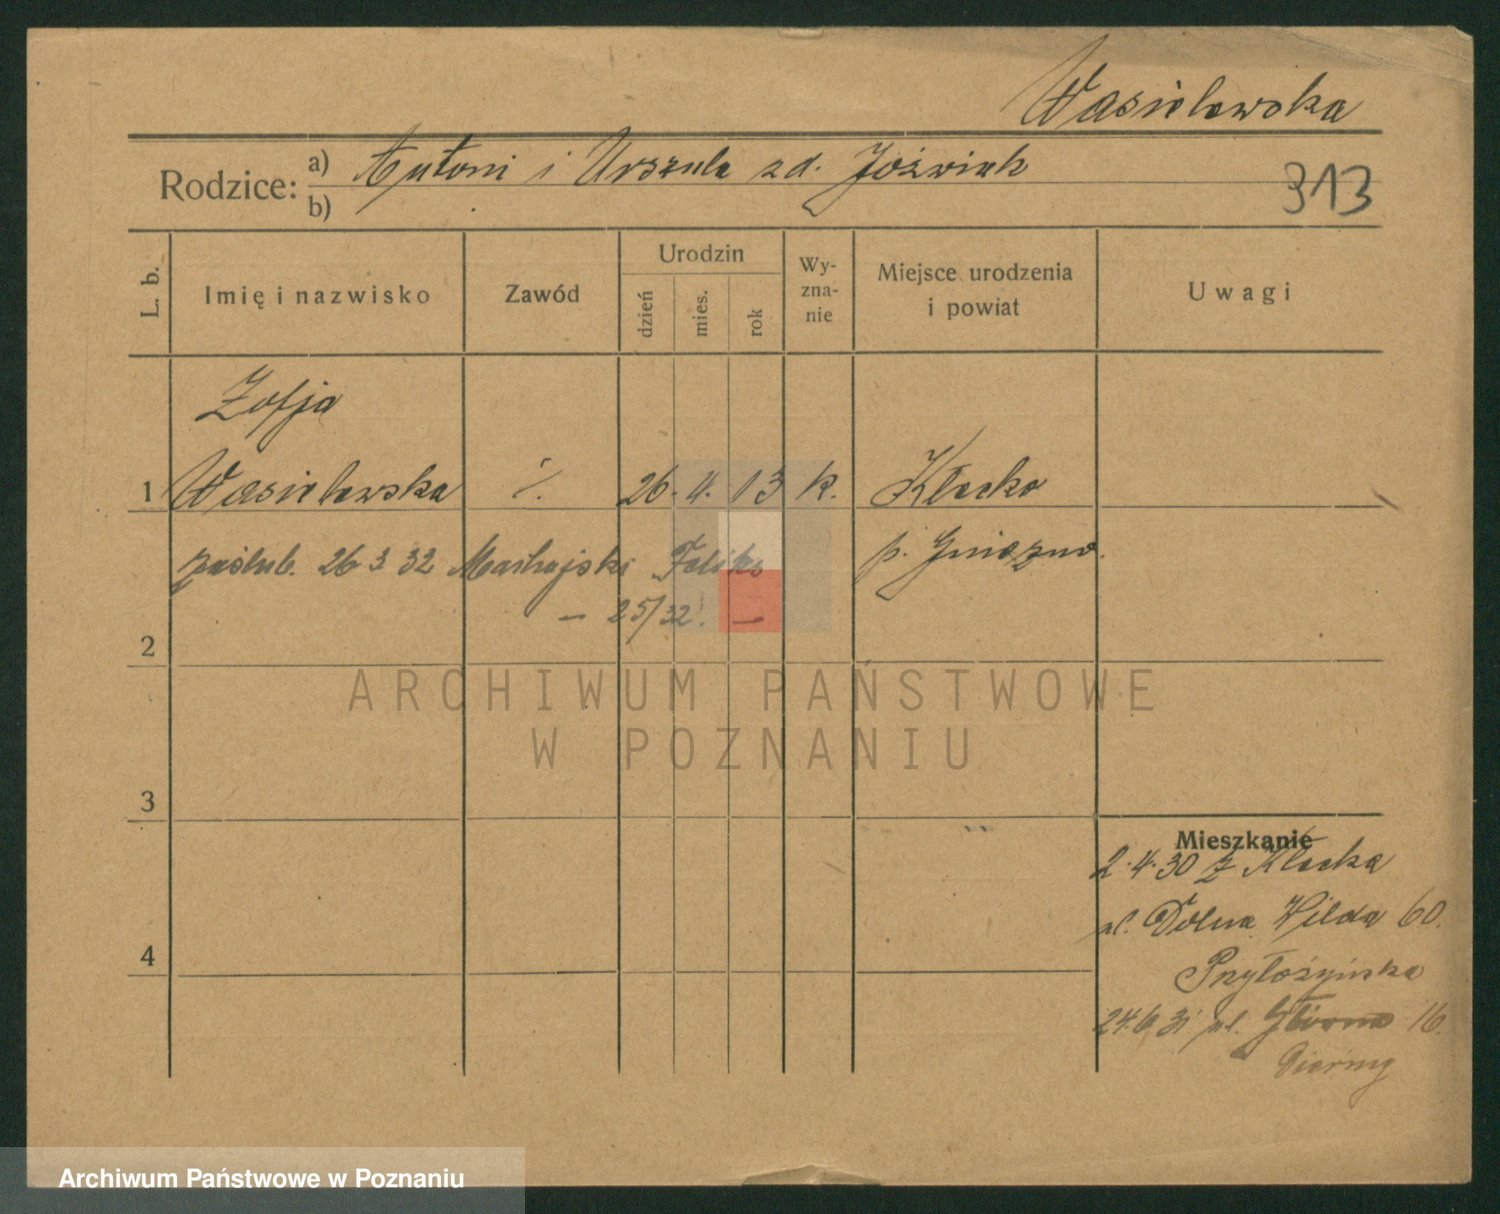 Wasielewska
Rodzice: a) Antoni i Urszula zd. Jóźwiak
b)
313
L. b.
Imię i nazwisko
Zawód
Urodzin
dzień
mies.
rok
Wy-
zna-
nie
Miejsce urodzenia
i powiat
Uwagi
Zofja
1 Wasielewska /. 26. 4. 13 k. Kłecko
p. Gniezno.
poślub. 26 3 32 Feliks
— 25/32! —
2
ARCHIWUM PAŃSTWOWE
W POZNANIU
3
Mieszkanie
2.4.30 z Kłecka
ul. Dolna Wilda 60.
Przyłożyńska
4
24.6 31 ul. 16.
Archiwum Państwowe w Poznaniu